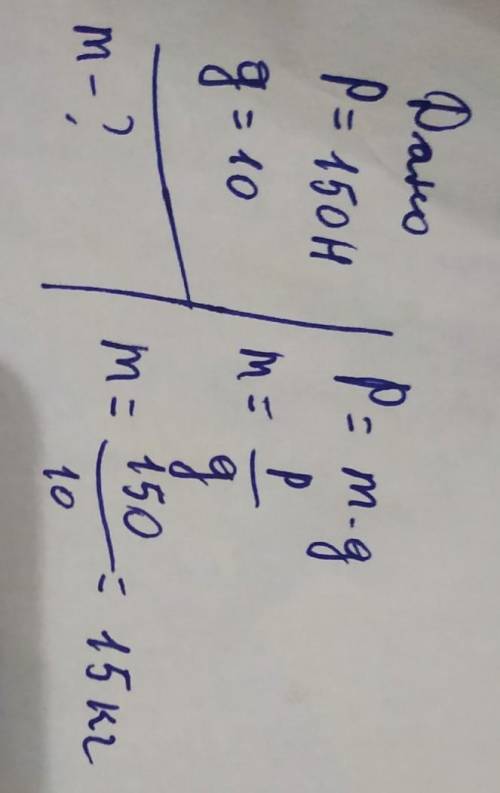 Дано
P = 150Н
g = 10
m - ?
P = m · g
m = P/g
m = 150/10 = 15 кг